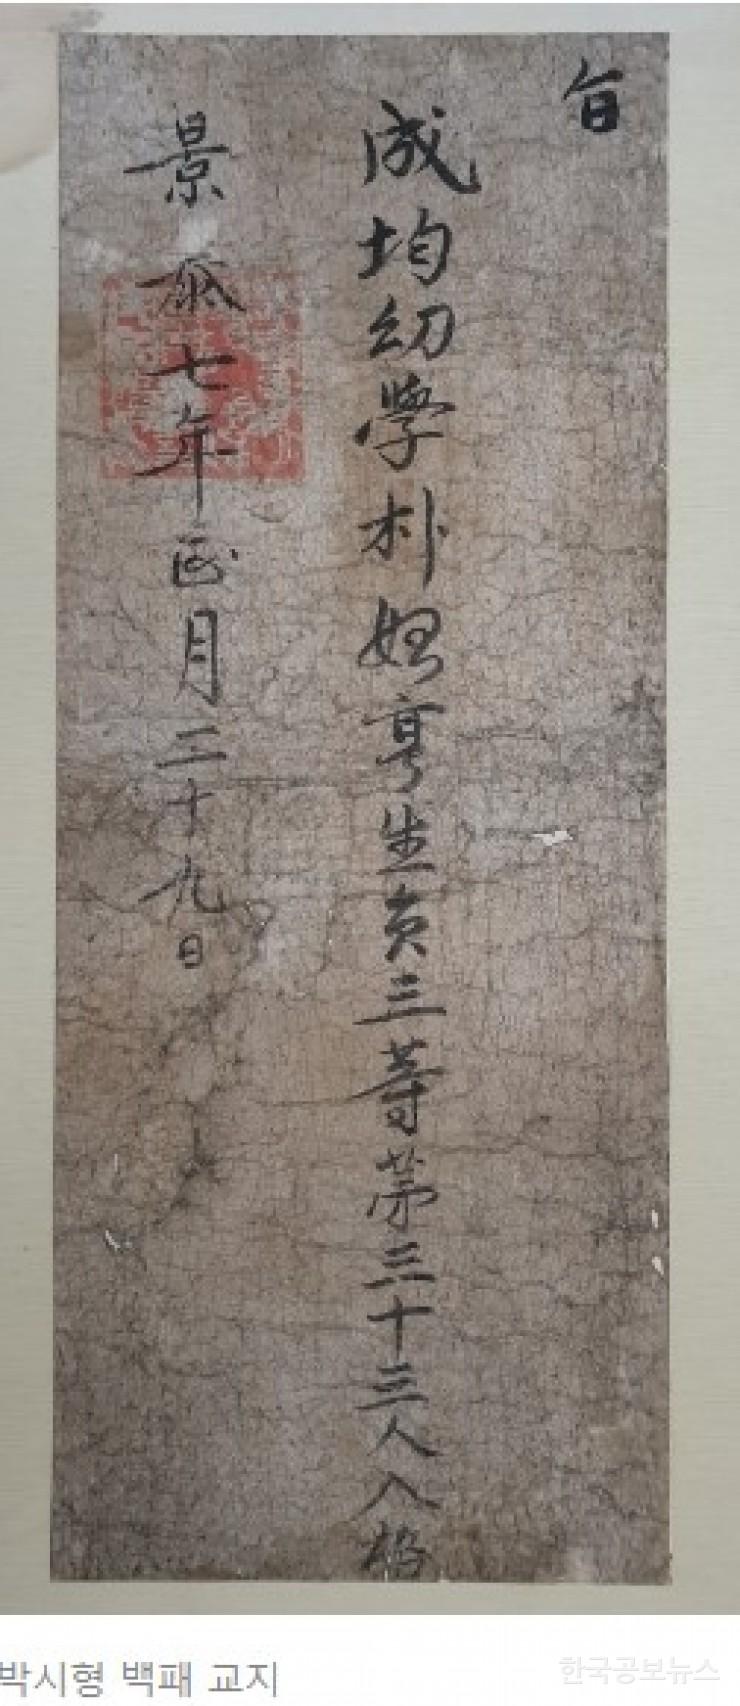 旨
成均幼學朴始亨生員三等第三十三人入格
景泰七年正月二十九日
박시형 백패 교지
한국공보뉴스